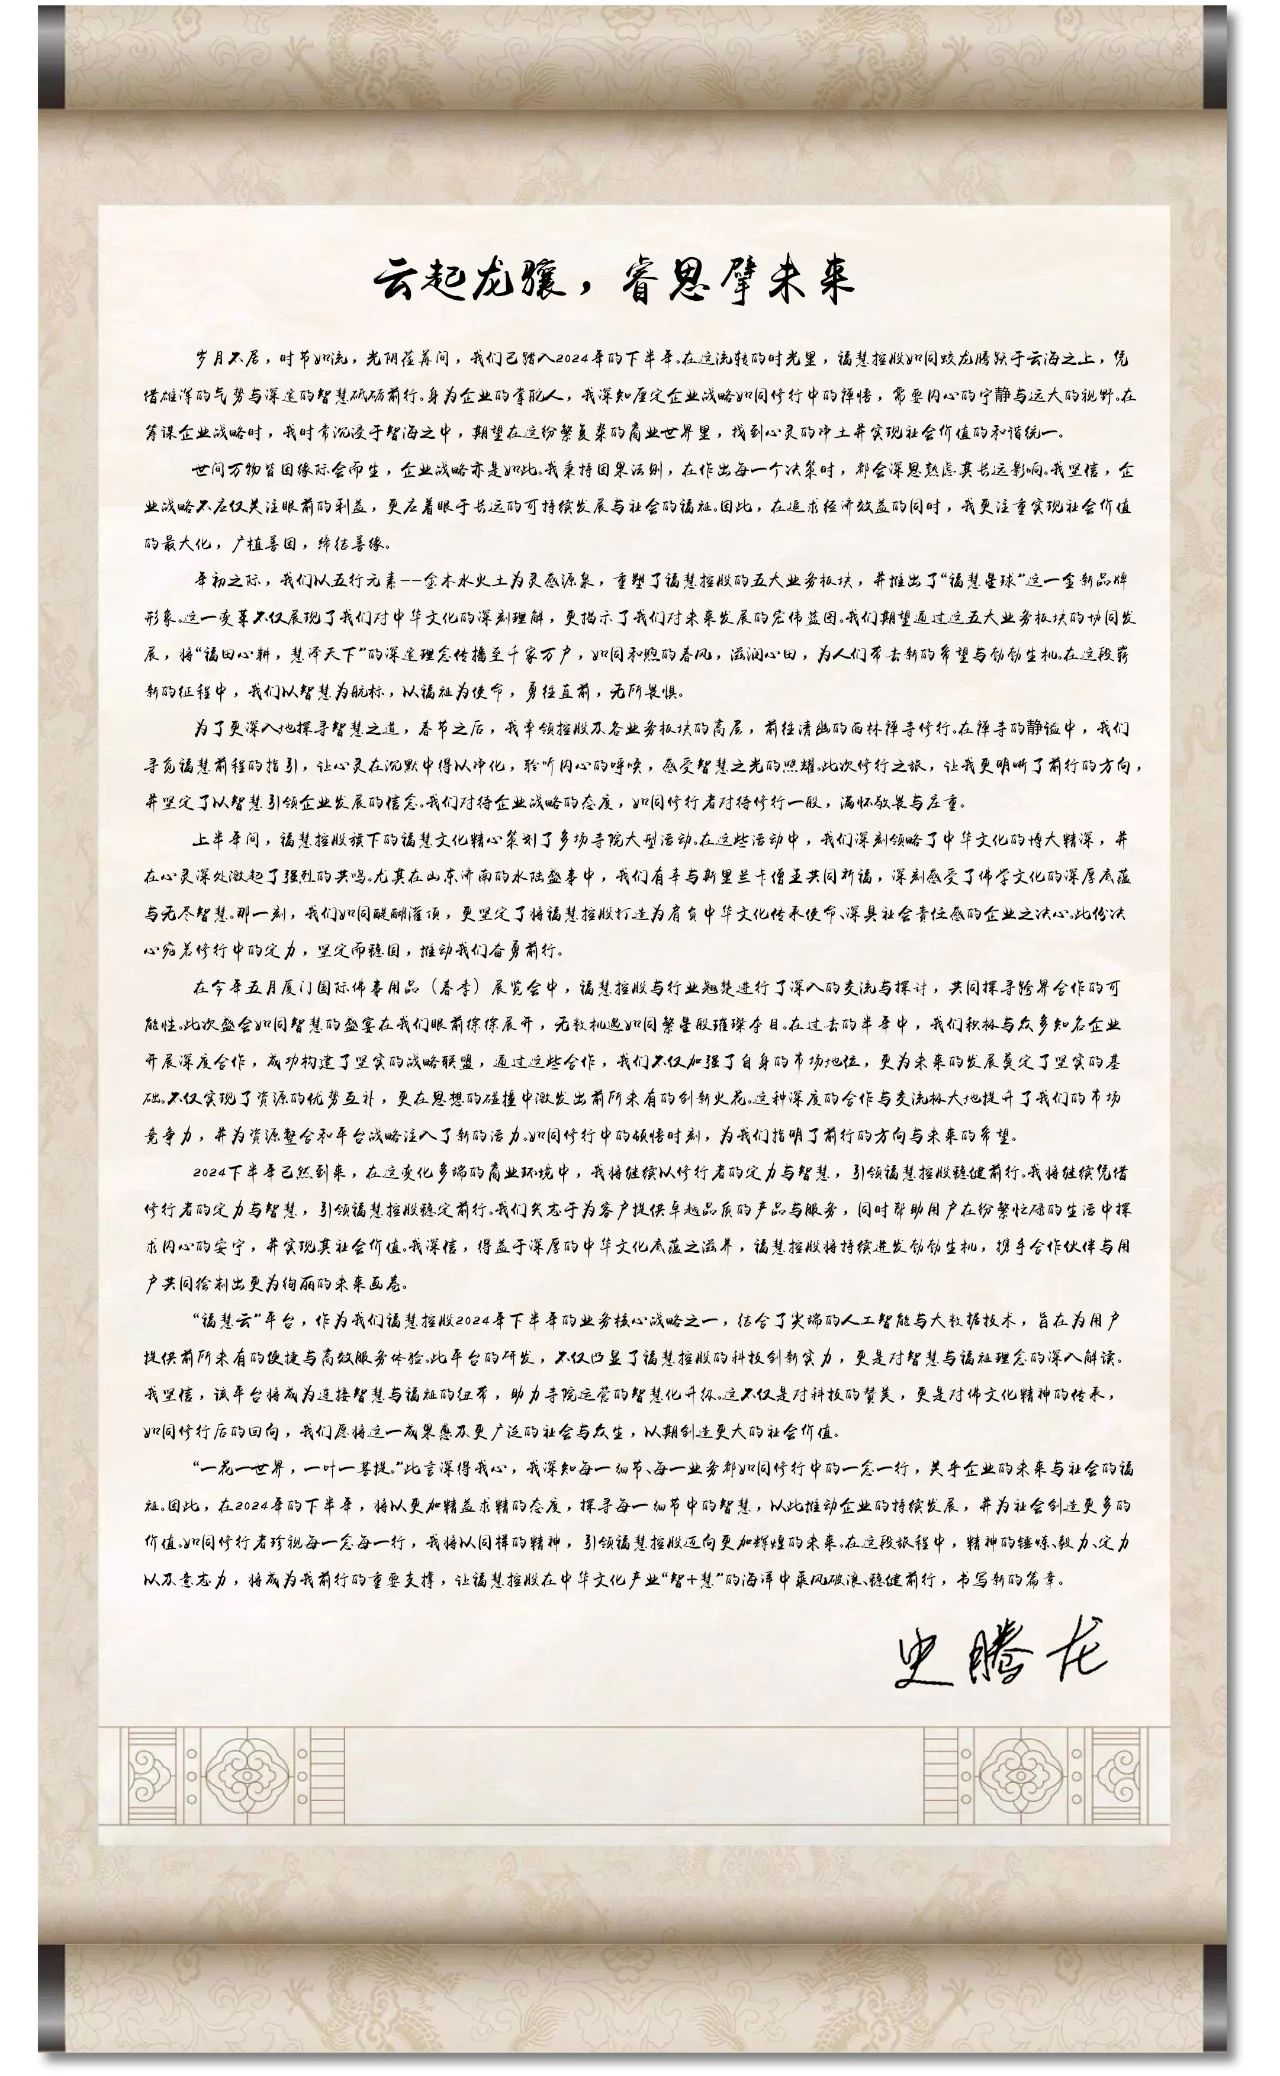 云起龙骧，睿思擘未来
岁月不居，时节如流，光阴荏苒间，我们已踏入2024年的下半年。在这流转的时光里，福慧控股如同蛟龙腾跃于云海之上，凭
借雄浑的气势与深邃的智慧砥砺前行。身为企业的掌舵人，我深知厘定企业战略如同修行中的禅悟，需要内心的宁静与远大的视野。在
筹谋企业战略时，我时常沉浸于智海之中，期望在这纷繁复杂的商业世界里，找到心灵的净土并实现社会价值的和谐统一。
世间万物皆因缘际会而生，企业战略亦是如此。我秉持因果法则，在作出每一个决策时，都会深思熟虑其长远影响。我坚信，企
业战略不应仅关注眼前的利益，更应着眼于长远的可持续发展与社会的福祉。因此，在追求经济效益的同时，我更注重实现社会价值
的最大化，广植善因，缔结善缘。
年初之际，我们以五行元素--金木水火土为灵感源泉，重塑了福慧控股的五大业务板块，并推出了“福慧星球”这一全新品牌
形象。这一变革不仅展现了我们对中华文化的深刻理解，更揭示了我们对未来发展的宏伟蓝图。我们期望通过这五大业务板块的协同发
展，将“福田心耕，慧泽天下”的深邃理念传播至千家万户，如同和煦的春风，滋润心田，为人们带去新的希望与勃勃生机。在这段崭
新的征程中，我们以智慧为航标，以福祉为使命，勇往直前，无所畏惧。
为了更深入地探寻智慧之道，春节之后，我率领控股及各业务板块的高层，前往清幽的西林禅寺修行。在禅寺的静谧中，我们
寻觅福慧前程的指引，让心灵在沉默中得以净化，聆听内心的呼唤，感受智慧之光的照耀。此次修行之旅，让我更明晰了前行的方向，
并坚定了以智慧引领企业发展的信念。我们对待企业战略的态度，如同修行者对待修行一般，满怀敬畏与庄重。
上半年间，福慧控股旗下的福慧文化精心策划了多场寺院大型活动。在这些活动中，我们深刻领略了中华文化的博大精深，并
在心灵深处激起了强烈的共鸣。尤其在山东济南的水陆盛事中，我们有幸与斯里兰卡僧王共同祈福，深刻感受了佛学文化的深厚底蕴
与无尽智慧。那一刻，我们如同醍醐灌顶，更坚定了将福慧控股打造为肩负中华文化传承使命、深具社会责任感的企业之决心。此份决
心宛若修行中的定力，坚定而稳固，推动我们奋勇前行。
在今年五月厦门国际佛事用品（春季）展览会中，福慧控股与行业翘楚进行了深入的交流与探讨，共同探寻跨界合作的可
能性。此次盛会如同智慧的盛宴在我们眼前徐徐展开，无数机遇如同繁星般璀璨夺目。在过去的半年中，我们积极与众多知名企业
开展深度合作，成功构建了坚实的战略联盟，通过这些合作，我们不仅加强了自身的市场地位，更为未来的发展奠定了坚实的基
础。不仅实现了资源的优势互补，更在思想的碰撞中激发出前所未有的创新火花。这种深度的合作与交流极大地提升了我们的市场
竞争力，并为资源整合和平台战略注入了新的活力。如同修行中的顿悟时刻，为我们指明了前行的方向与未来的希望。
2024下半年已然到来，在这变化多端的商业环境中，我将继续以修行者的定力与智慧，引领福慧控股稳健前行。我将继续凭借
修行者的定力与智慧，引领福慧控股稳定前行。我们矢志于为客户提供卓越品质的产品与服务，同时帮助用户在纷繁忙碌的生活中探
求内心的安宁，并实现其社会价值。我深信，得益于深厚的中华文化底蕴之滋养，福慧控股将持续迸发勃勃生机，携手合作伙伴与用
户共同绘制出更为绚丽的未来画卷。
“福慧云”平台，作为我们福慧控股2024年下半年的业务核心战略之一，结合了尖端的人工智能与大数据技术，旨在为用户
提供前所未有的便捷与高效服务体验。此平台的研发，不仅凸显了福慧控股的科技创新实力，更是对智慧与福祉理念的深入解读。
我坚信，该平台将成为连接智慧与福祉的纽带，助力寺院运营的智慧化升级。这不仅是对科技的赞美，更是对佛文化精神的传承，
如同修行后的回向，我们愿将这一成果惠及更广泛的社会与众生，以期创造更大的社会价值。
“一花一世界，一叶一菩提。”此言深得我心，我深知每一细节、每一业务都如同修行中的一念一行，关乎企业的未来与社会的福
祉。因此，在2024年的下半年，将以更加精益求精的态度，探寻每一细节中的智慧，以此推动企业的持续发展，并为社会创造更多的
价值。如同修行者珍视每一念每一行，我将以同样的精神，引领福慧控股迈向更加辉煌的未来。在这段旅程中，精神的锤炼、毅力、定力
以及意志力，将成为我前行的重要支撑，让福慧控股在中华文化产业“智+慧”的海洋中乘风破浪、稳健前行，书写新的篇章。
史腾龙